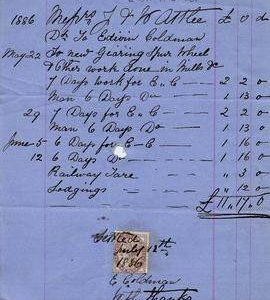 1886 Messrs J & W Attlee £ s d
Dr. To Edwin Goldman
May 22 To new Gearing Spur Wheel
& Other work done in Mills &c
7 Days work for E. C 2 2 0
Man 6 Days Do 1 13 0
29 7 Days for E. C 2 2 0
Man 6 Days Do 1 13 0
June 5 6 Days for E. C 1 16 0
12 6 Days Do 1 16 0
Railway Fare " 3 0
Lodgings " 12 0
£11.17.0
Settled
July 12th
1886
E Goldman
With thanks